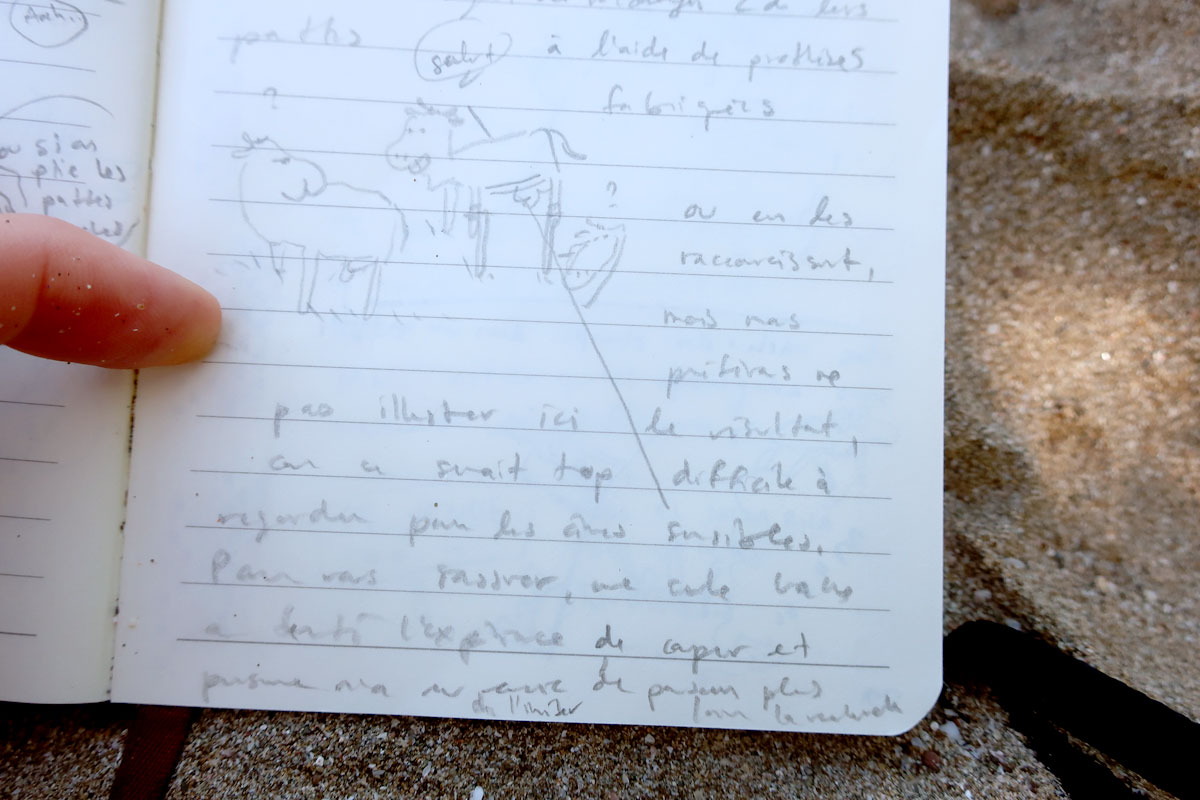 Anh.
ou si on
plie les
pattes
de leurs
pattes
salut
à l'aide de prothèses
fabriquées
?
?
ou en les
raccourcissant,
mais nous
préférons ne
pas illustrer ici le résultat,
car ce serait trop difficile à
regarder pour les âmes sensibles.
Pour vous rassurer, une seule vache
a tenté l'expérience de couper et
personne n'a eu envie de pousser plus
de l'imiter
loin la recherche